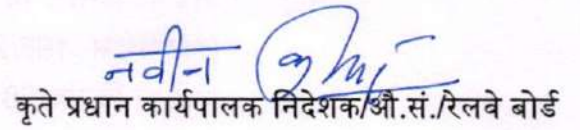 नवीन कुमार
कृते प्रधान कार्यपालक निदेशक/औ.सं./रेलवे बोर्ड